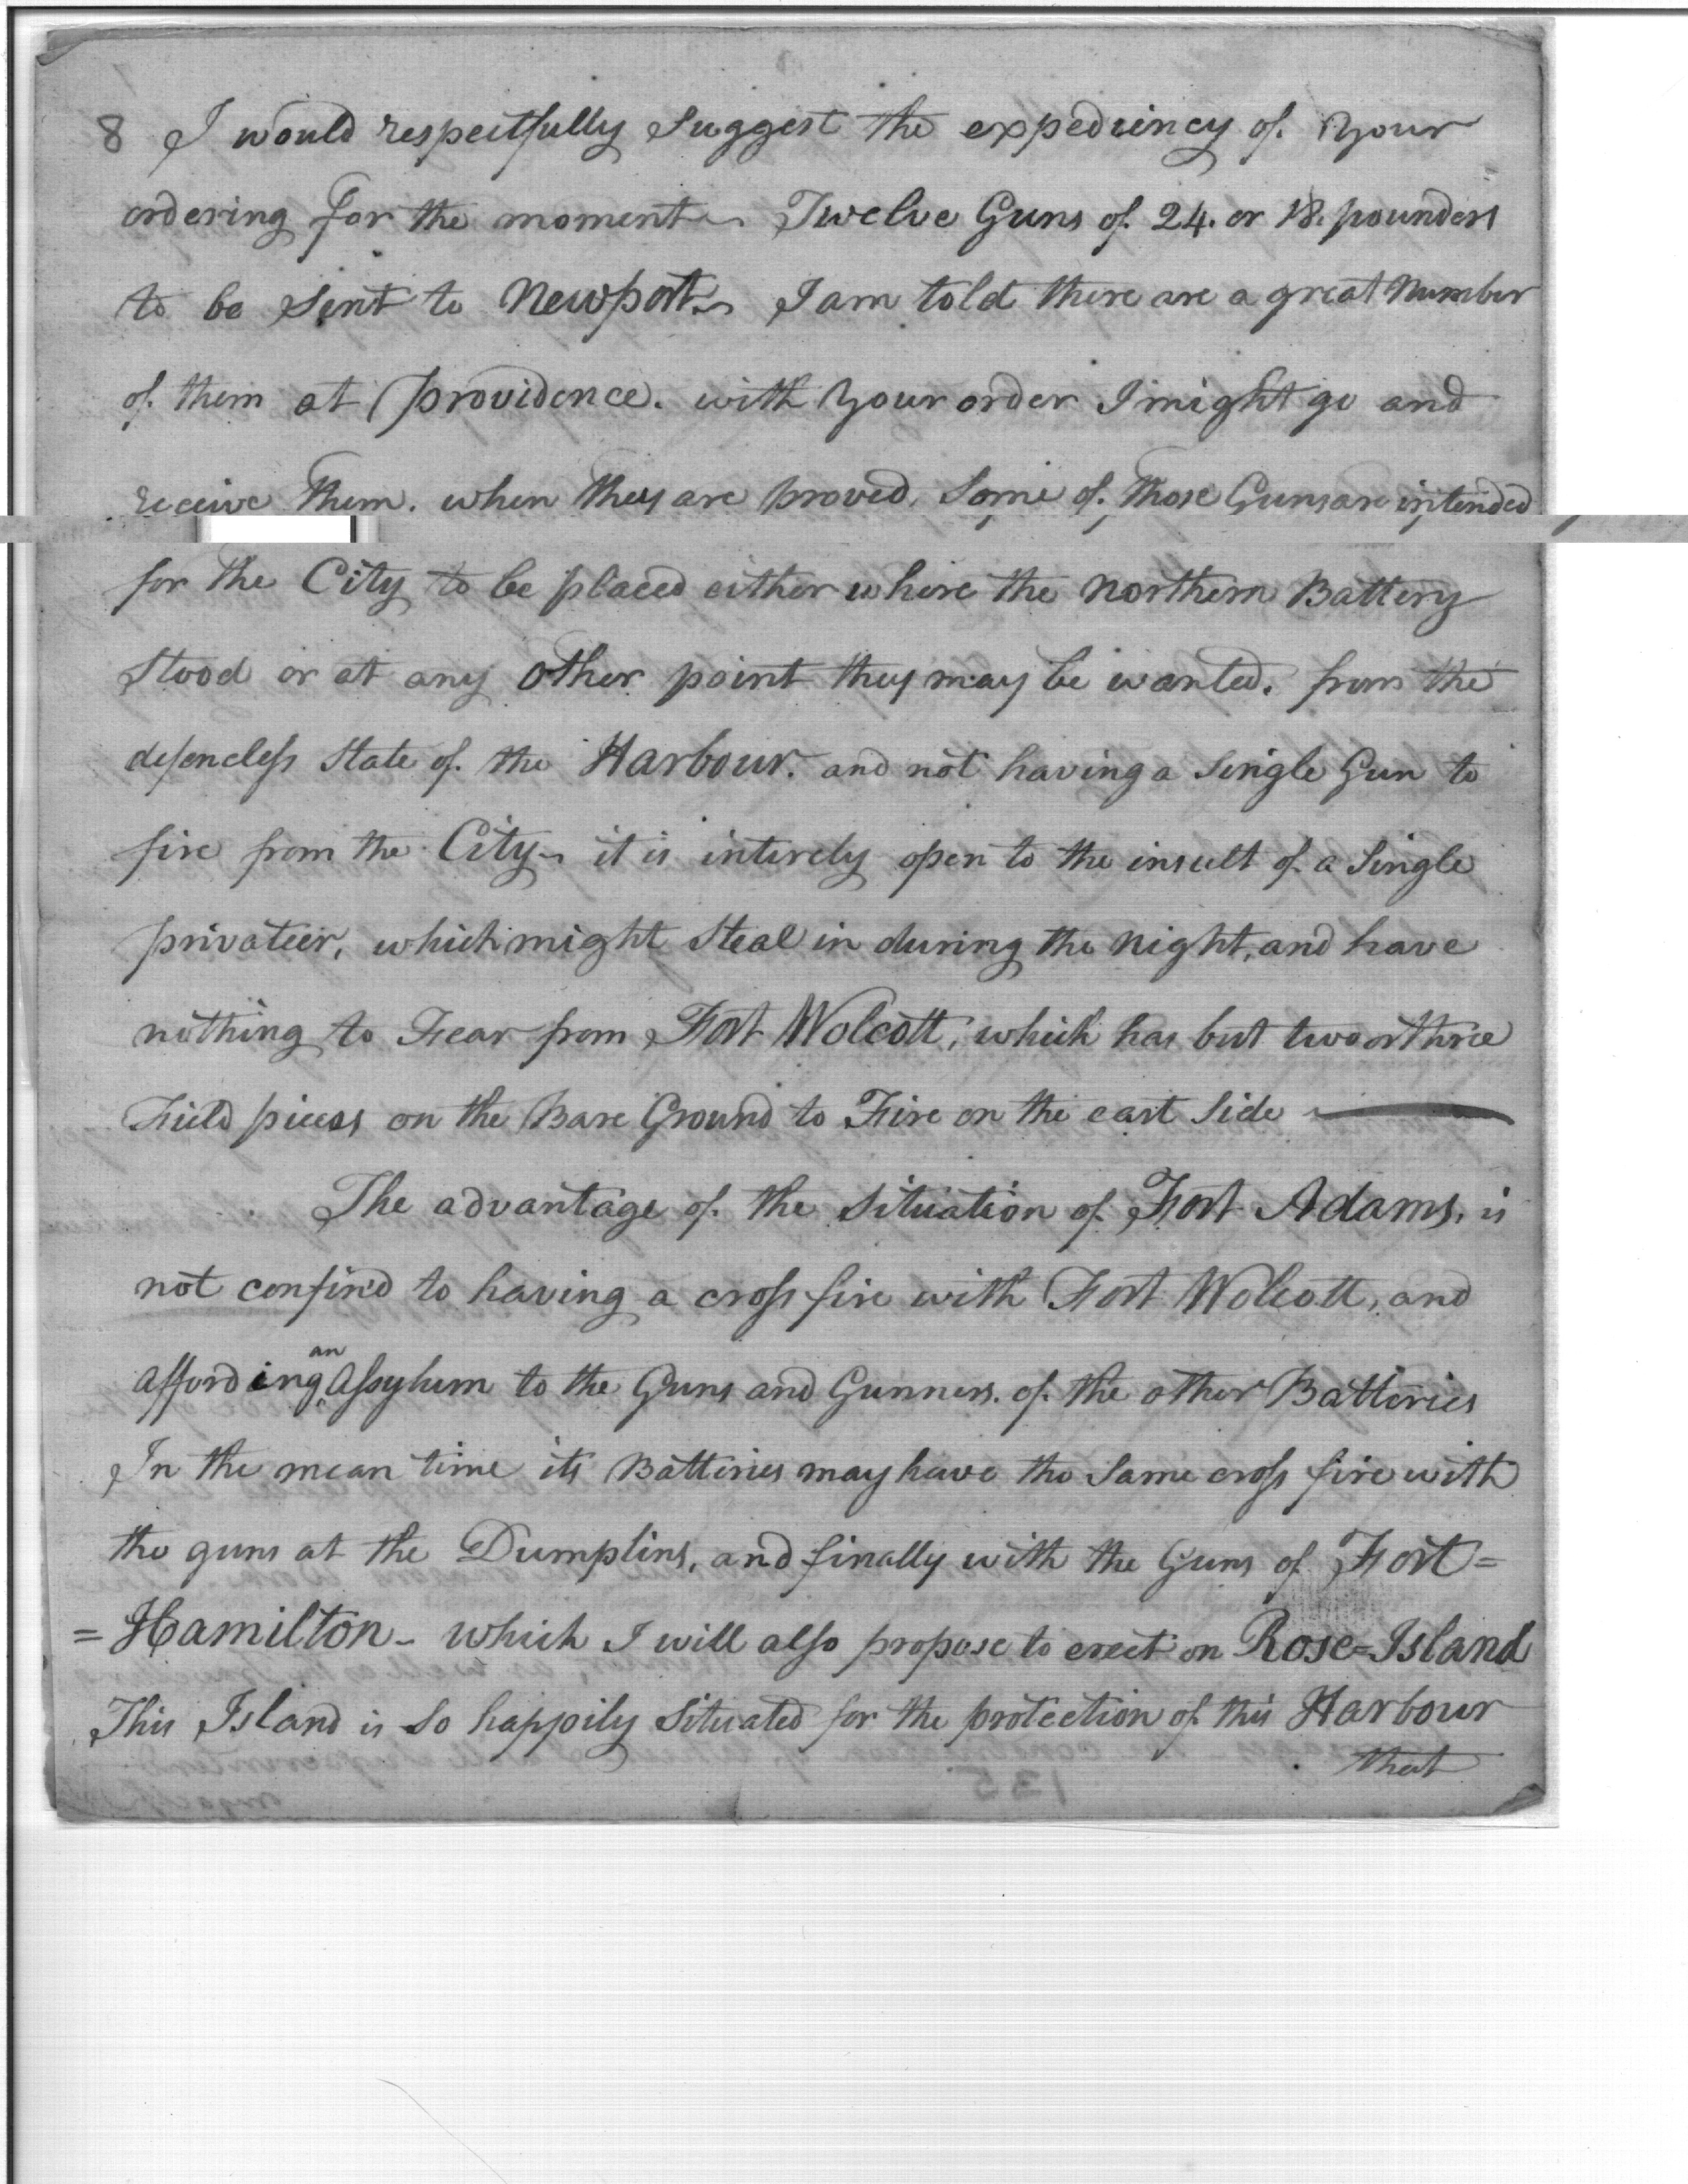 8 I would respectfully Suggest the expediency of. Your
ordering for the moment Twelve Guns of. 24. or 18. pounders
to be Sent to Newport. I am told there are a great Number
of. them at providence. with Your order I might go and
receive Them. when they are proved, Some of. Those Guns are intended
for The City to be placed either where the Northern Battery
Stood or at any other point they may be wanted. from the
defenceless State of. the Harbour. and not having a Single Gun to
fire from the City it is intirely open to the insult of a Single
privateer, which might Steal in during the Night, and have
nothing to Fear from Fort Wolcott, which has but two or three
Field pieces on the Bare Ground to Fire on the east Side
The advantage of. the Situation of. Fort Adams, is
not confin'd to having a cross fire with Fort Wolcott, and
affording an Assylum to the Guns and Gunners. of. the other Batteries
In the mean time its Batteries may have the Same cross fire with
the guns at the Dumplins, and finally with the Guns of Fort=
=Hamilton- which I will also propose to erect on Rose=Island
This Island is So happily Situated for the protection of this Harbour
that
135